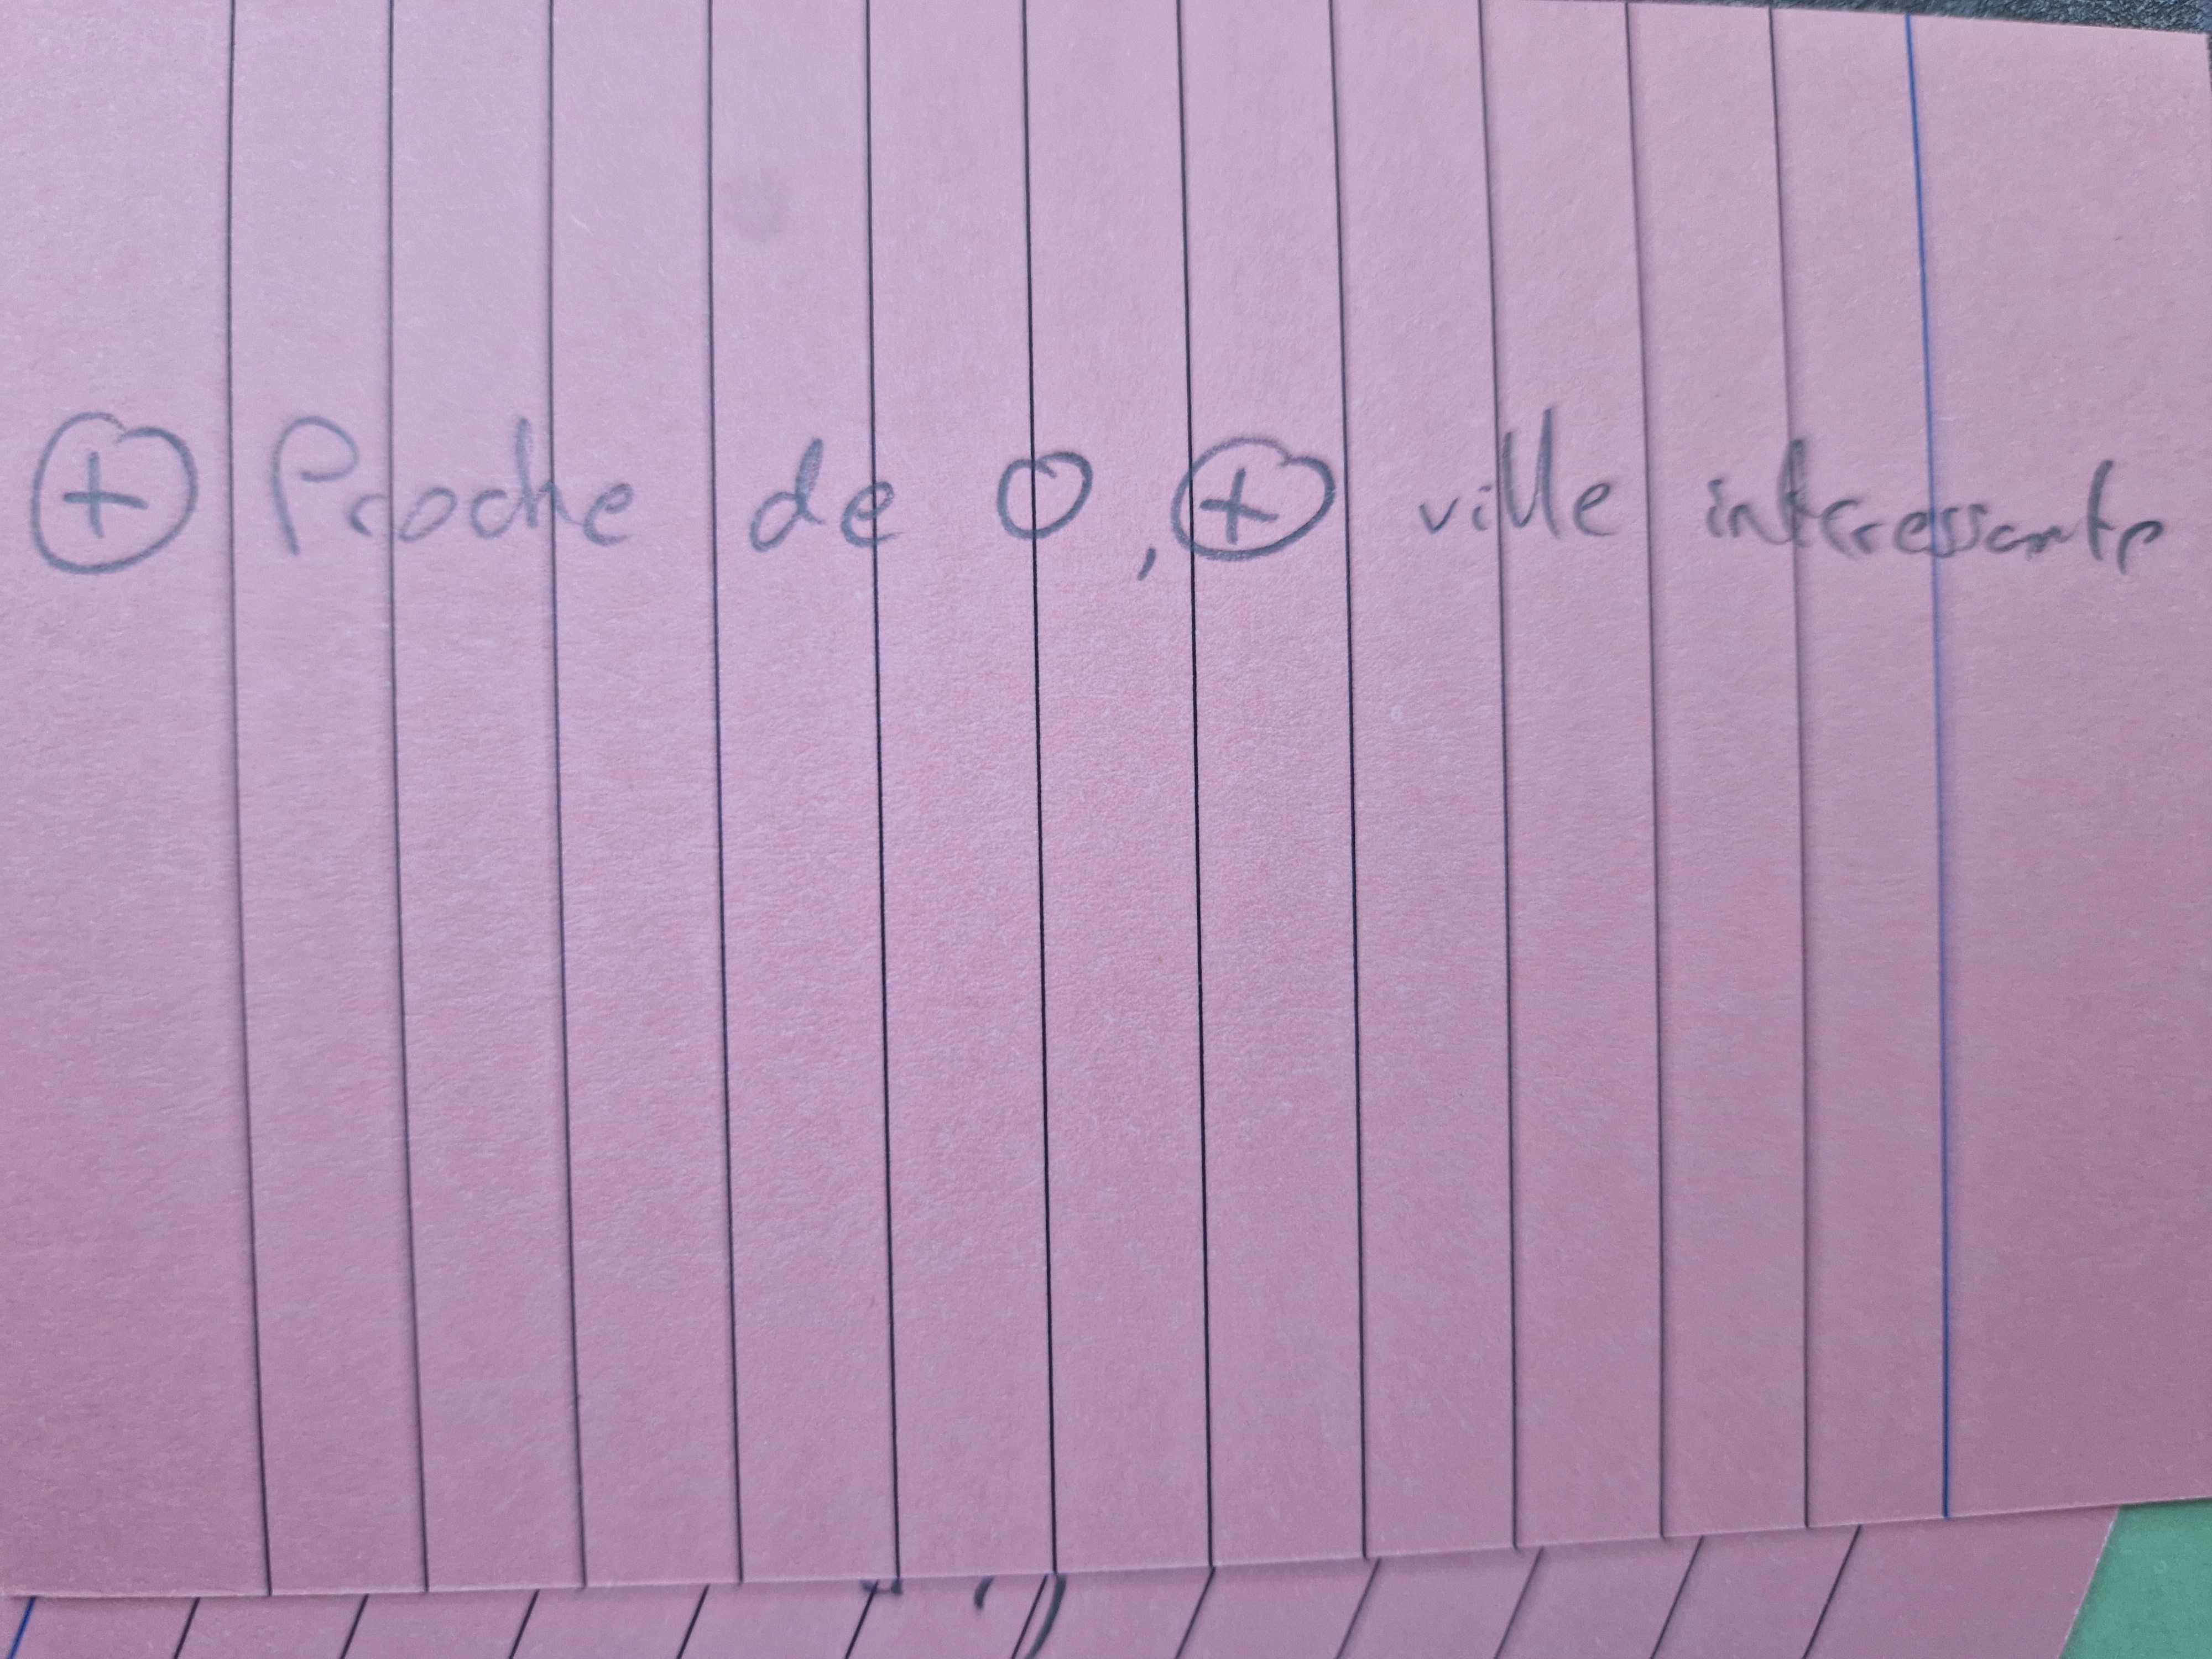 ⊕ Proche de 0, ⊕ ville interressante